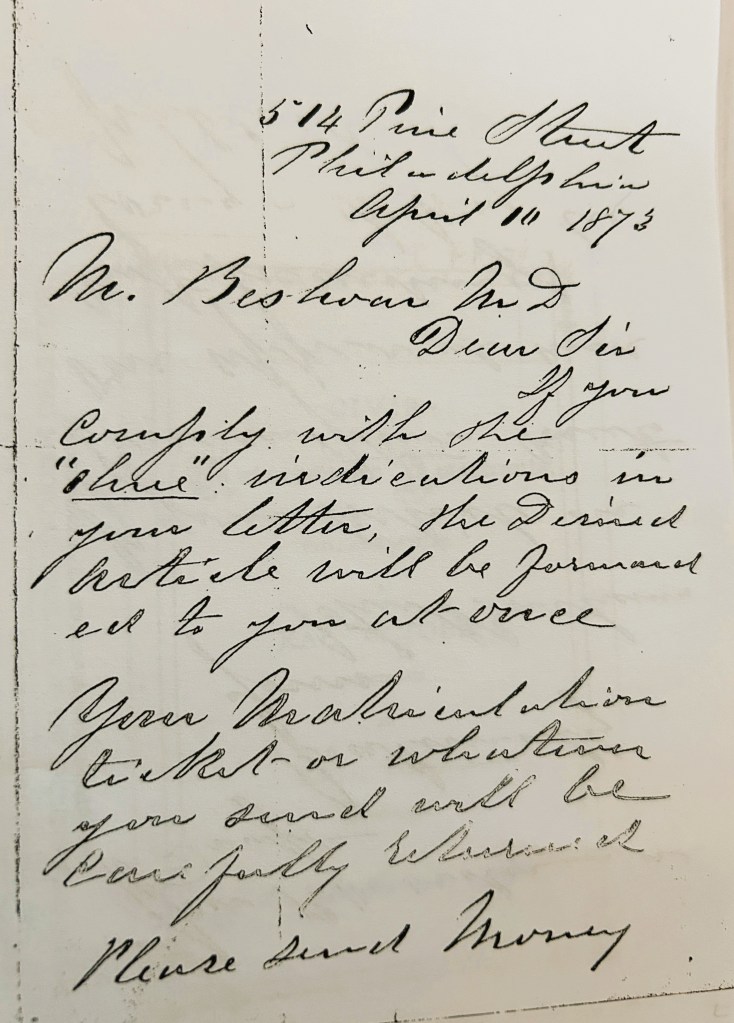 514 Pine Street
Philadelphia
April 10 1873
M. Beshoar MD
Dear Sir
If you
Comply with the
"true" indications in
your letter, the Desired
Article will be forward
ed to you at once
Your Matriculation
ticket or whatever
you send will be
Carefully returned
Please send Money